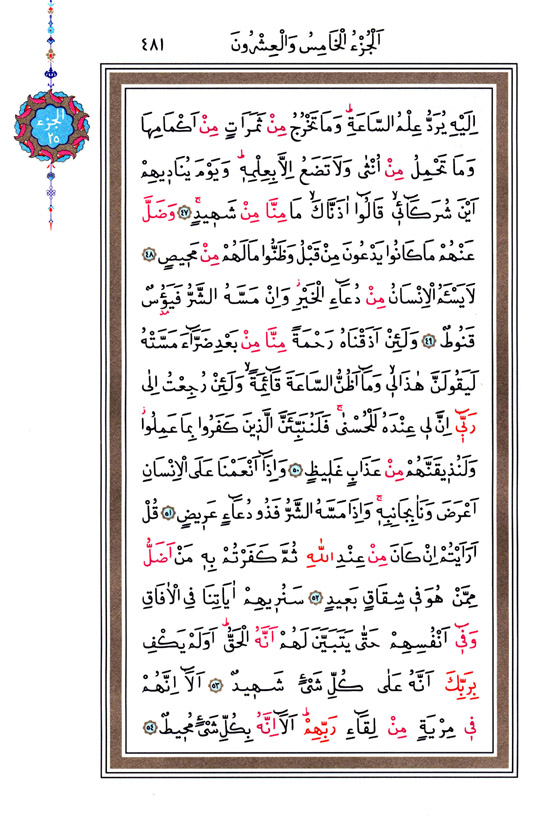 اَلْجُزْءُ الْخَامِسُ وَالْعِشْرُونَ
٤٨١
الجزء
٢٥
اِلَيْهِ يُرَدُّ عِلْمُ السَّاعَةِۜ وَمَا تَخْرُجُ مِنْ ثَمَرَاتٍ مِنْ اَكْمَامِهَا
وَمَا تَحْمِلُ مِنْ اُنْثٰى وَلَا تَضَعُ اِلَّا بِعِلْمِهٖۜ وَيَوْمَ يُنَادٖيهِمْ
اَيْنَ شُرَكَٓائٖيۙ قَالُٓوا اٰذَنَّاكَۙ مَا مِنَّا مِنْ شَهٖيدٍۚ ﴿٤٧﴾ وَضَلَّ
عَنْهُمْ مَا كَانُوا يَدْعُونَ مِنْ قَبْلُ وَظَنُّوا مَا لَهُمْ مِنْ مَحٖيصٍ ﴿٤٨﴾
لَا يَسْـَٔمُ الْاِنْسَانُ مِنْ دُعَٓاءِ الْخَيْرِؗ وَاِنْ مَسَّهُ الشَّرُّ فَيَؤُ۫سٌ
قَنُوطٌ ﴿٤٩﴾ وَلَئِنْ اَذَقْنَاهُ رَحْمَةً مِنَّا مِنْ بَعْدِ ضَرَّٓاءَ مَسَّتْهُ
لَيَقُولَنَّ هٰذَا لٖيۙ وَمَٓا اَظُنُّ السَّاعَةَ قَٓائِمَةًۙ وَلَئِنْ رُجِعْتُ اِلٰى
رَبّٖٓي اِنَّ لٖي عِنْدَهُ لَلْحُسْنٰىۚ فَلَنُنَبِّئَنَّ الَّذٖينَ كَفَرُوا بِمَا عَمِلُواؗ
وَلَنُذٖيقَنَّهُمْ مِنْ عَذَابٍ غَلٖيظٍ ﴿٥٠﴾ وَاِذَٓا اَنْعَمْنَا عَلَى الْاِنْسَانِ
اَعْرَضَ وَنَاٰ بِجَانِبِهٖۚ وَاِذَا مَسَّهُ الشَّرُّ فَذُو دُعَٓاءٍ عَرٖيضٍ ﴿٥١﴾ قُلْ
اَرَاَيْتُمْ اِنْ كَانَ مِنْ عِنْدِ اللّٰهِ ثُمَّ كَفَرْتُمْ بِهٖ مَنْ اَضَلُّ
مِمَّنْ هُوَ فٖي شِقَاقٍ بَعٖيدٍ ﴿٥٢﴾ سَنُرٖيهِمْ اٰيَاتِنَا فِي الْاٰفَاقِ
وَفٖٓي اَنْفُسِهِمْ حَتّٰى يَتَبَيَّنَ لَهُمْ اَنَّهُ الْحَقُّۜ اَوَلَمْ يَكْفِ
بِرَبِّكَ اَنَّهُ عَلٰى كُلِّ شَيْءٍ شَهٖيدٌ ﴿٥٣﴾ اَلَٓا اِنَّهُمْ
فٖي مِرْيَةٍ مِنْ لِقَٓاءِ رَبِّهِمْۜ اَلَٓا اِنَّهُ بِكُلِّ شَيْءٍ مُحٖيطٌ ﴿٥٤﴾